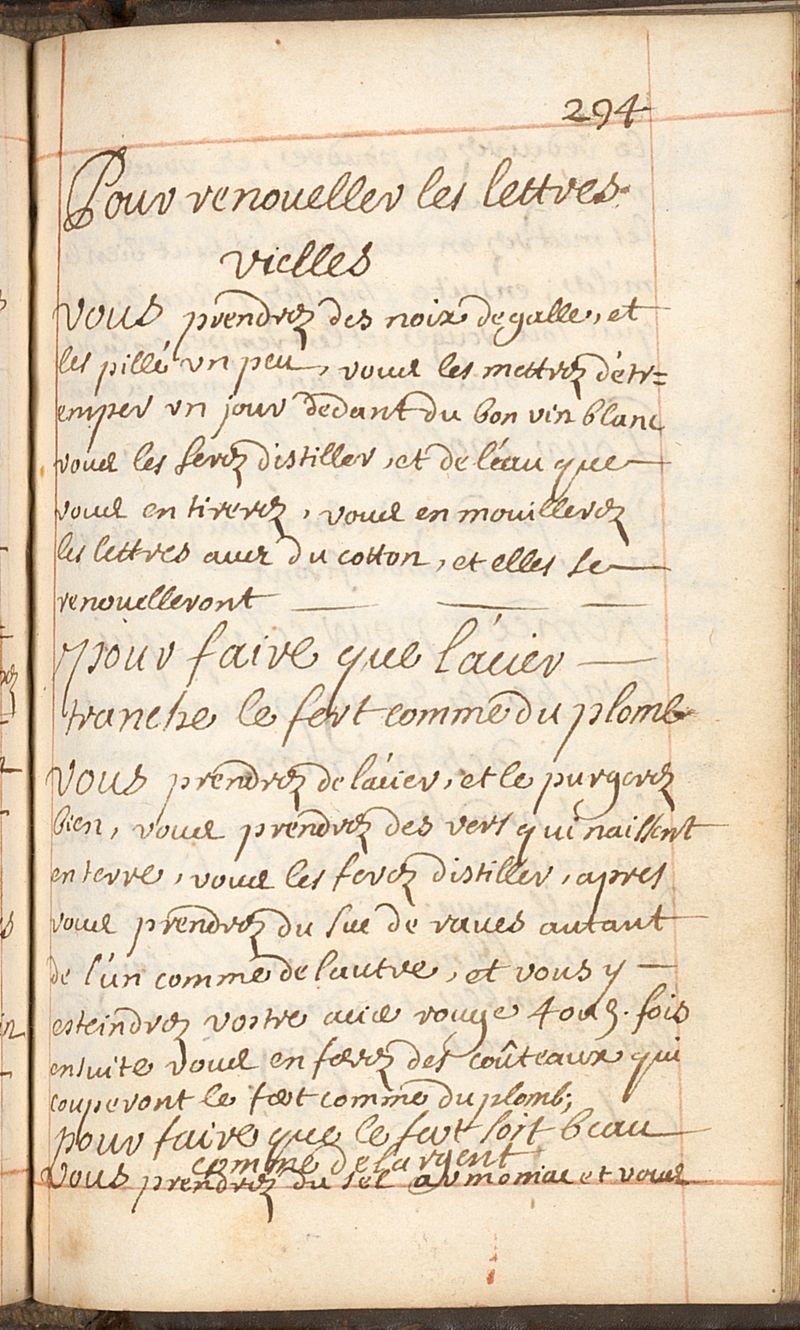 294
Pour renoueller les lettres
vielles
Vous prendrez des noix de galle, et
les pillé un peu, vous les mettrez détr=
emper un jour dedant du bon vin blanc
vous les ferez distiller, et de l'eau que
vous en tirerez, vous en mouillerez
les lettres avec du cotton, et elles se
renouelleront
pour faire que l'acier
tranche le fert comme du plomb
Vous prendrez de l'acier, et le purgerez
bien, vous prendrez des vers qui naissent
en terre, vous les ferez distiller, apres
vous prendrez du suc de raues autant
de l'un comme de lautre, et vous y
esteindrez vostre acié rouge 4 ou 5. fois
ensuite vous en ferez des coûteaux qui
couperont le fert comme du plomb;
pour faire que le fert soit beau
comme de largent
Vous prendrez du sel armoniac et vous